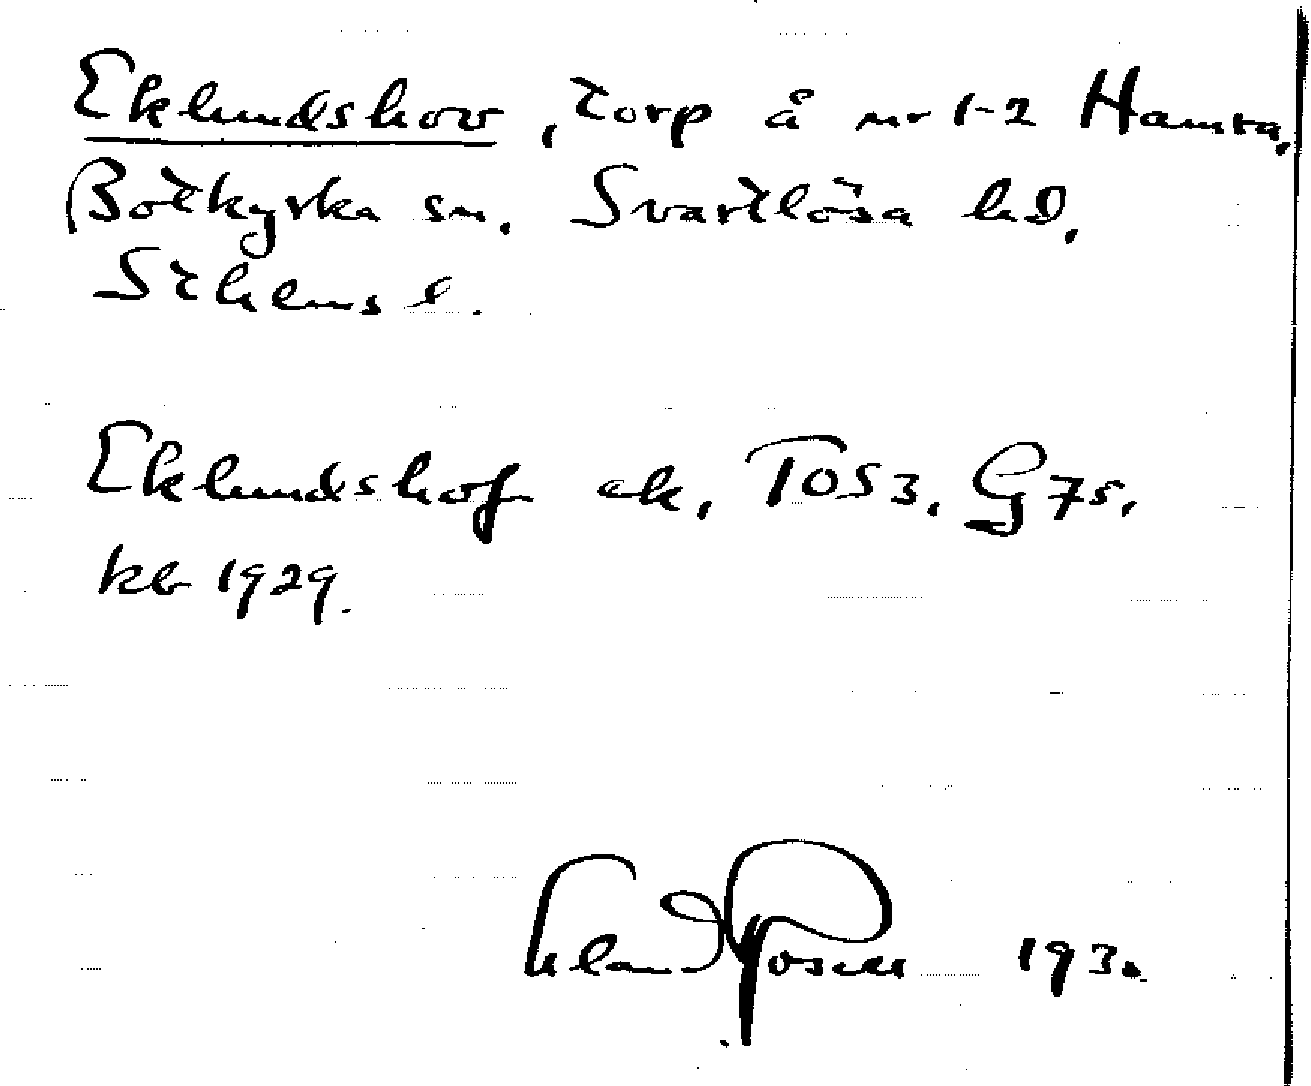 Eklundshov, torp å nr 1-2 Hamra,
Botkyrka sn. Svartlösa hd,
Sthlms l.
Eklundshof ek, TOS 3. G 75,
kb 1929.
Erland Rosell 193